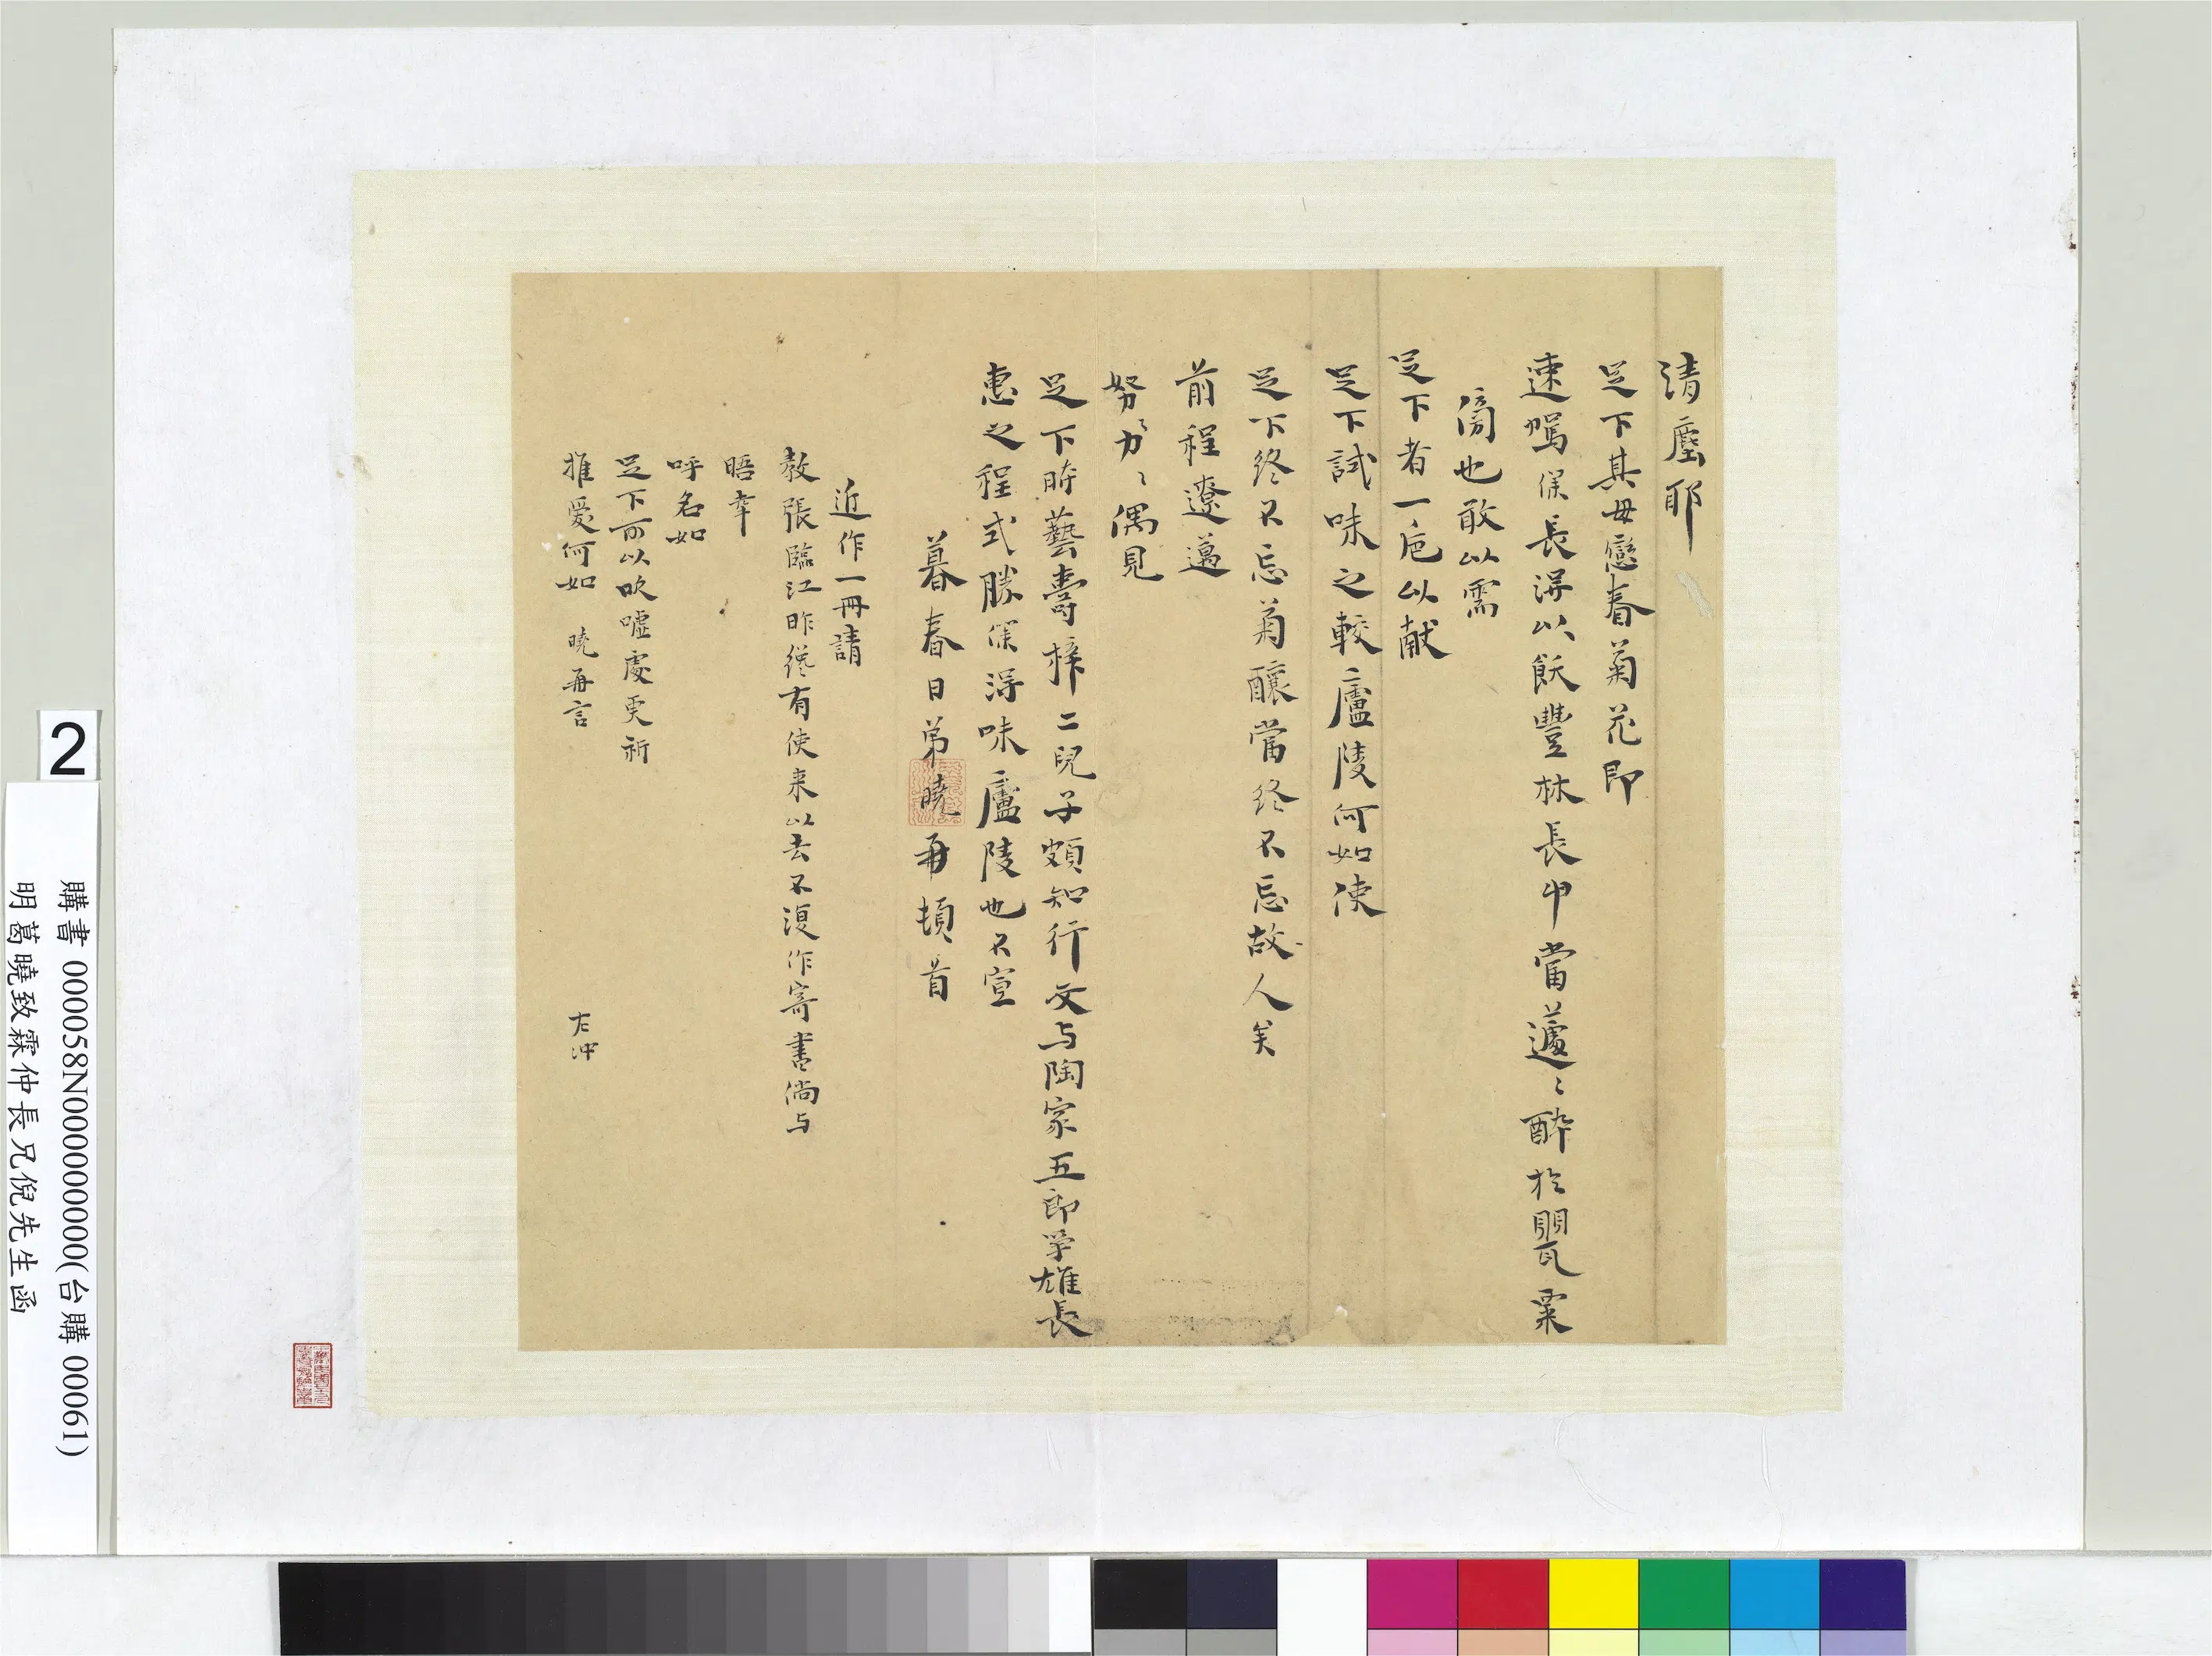 清塵耶
足下其毋戀春菊花即
速駕保長得以飫豐林長中當蘧〻醉於罌粟
傍也敢以需
足下者一卮以献
足下試味之較廬陵何如使
足下終不忘菊釀當終不忘故人矣
前程遼邁
努〻力〻偶見
足下時藝壽梓二兒子頗知行文与陶家五郎学雄長
惠之程式勝保得味廬陵也不宣
暮春日弟曉再頓首
近作一冊請
教張臨江昨纔有使来以去不復作寄書倘与
晤幸
呼名如
足下可以吹噓處更祈
推愛何如 曉再言
左冲
2
購書 000058N000000000(台購 00061)
明葛曉致霖仲長兄倪先生函